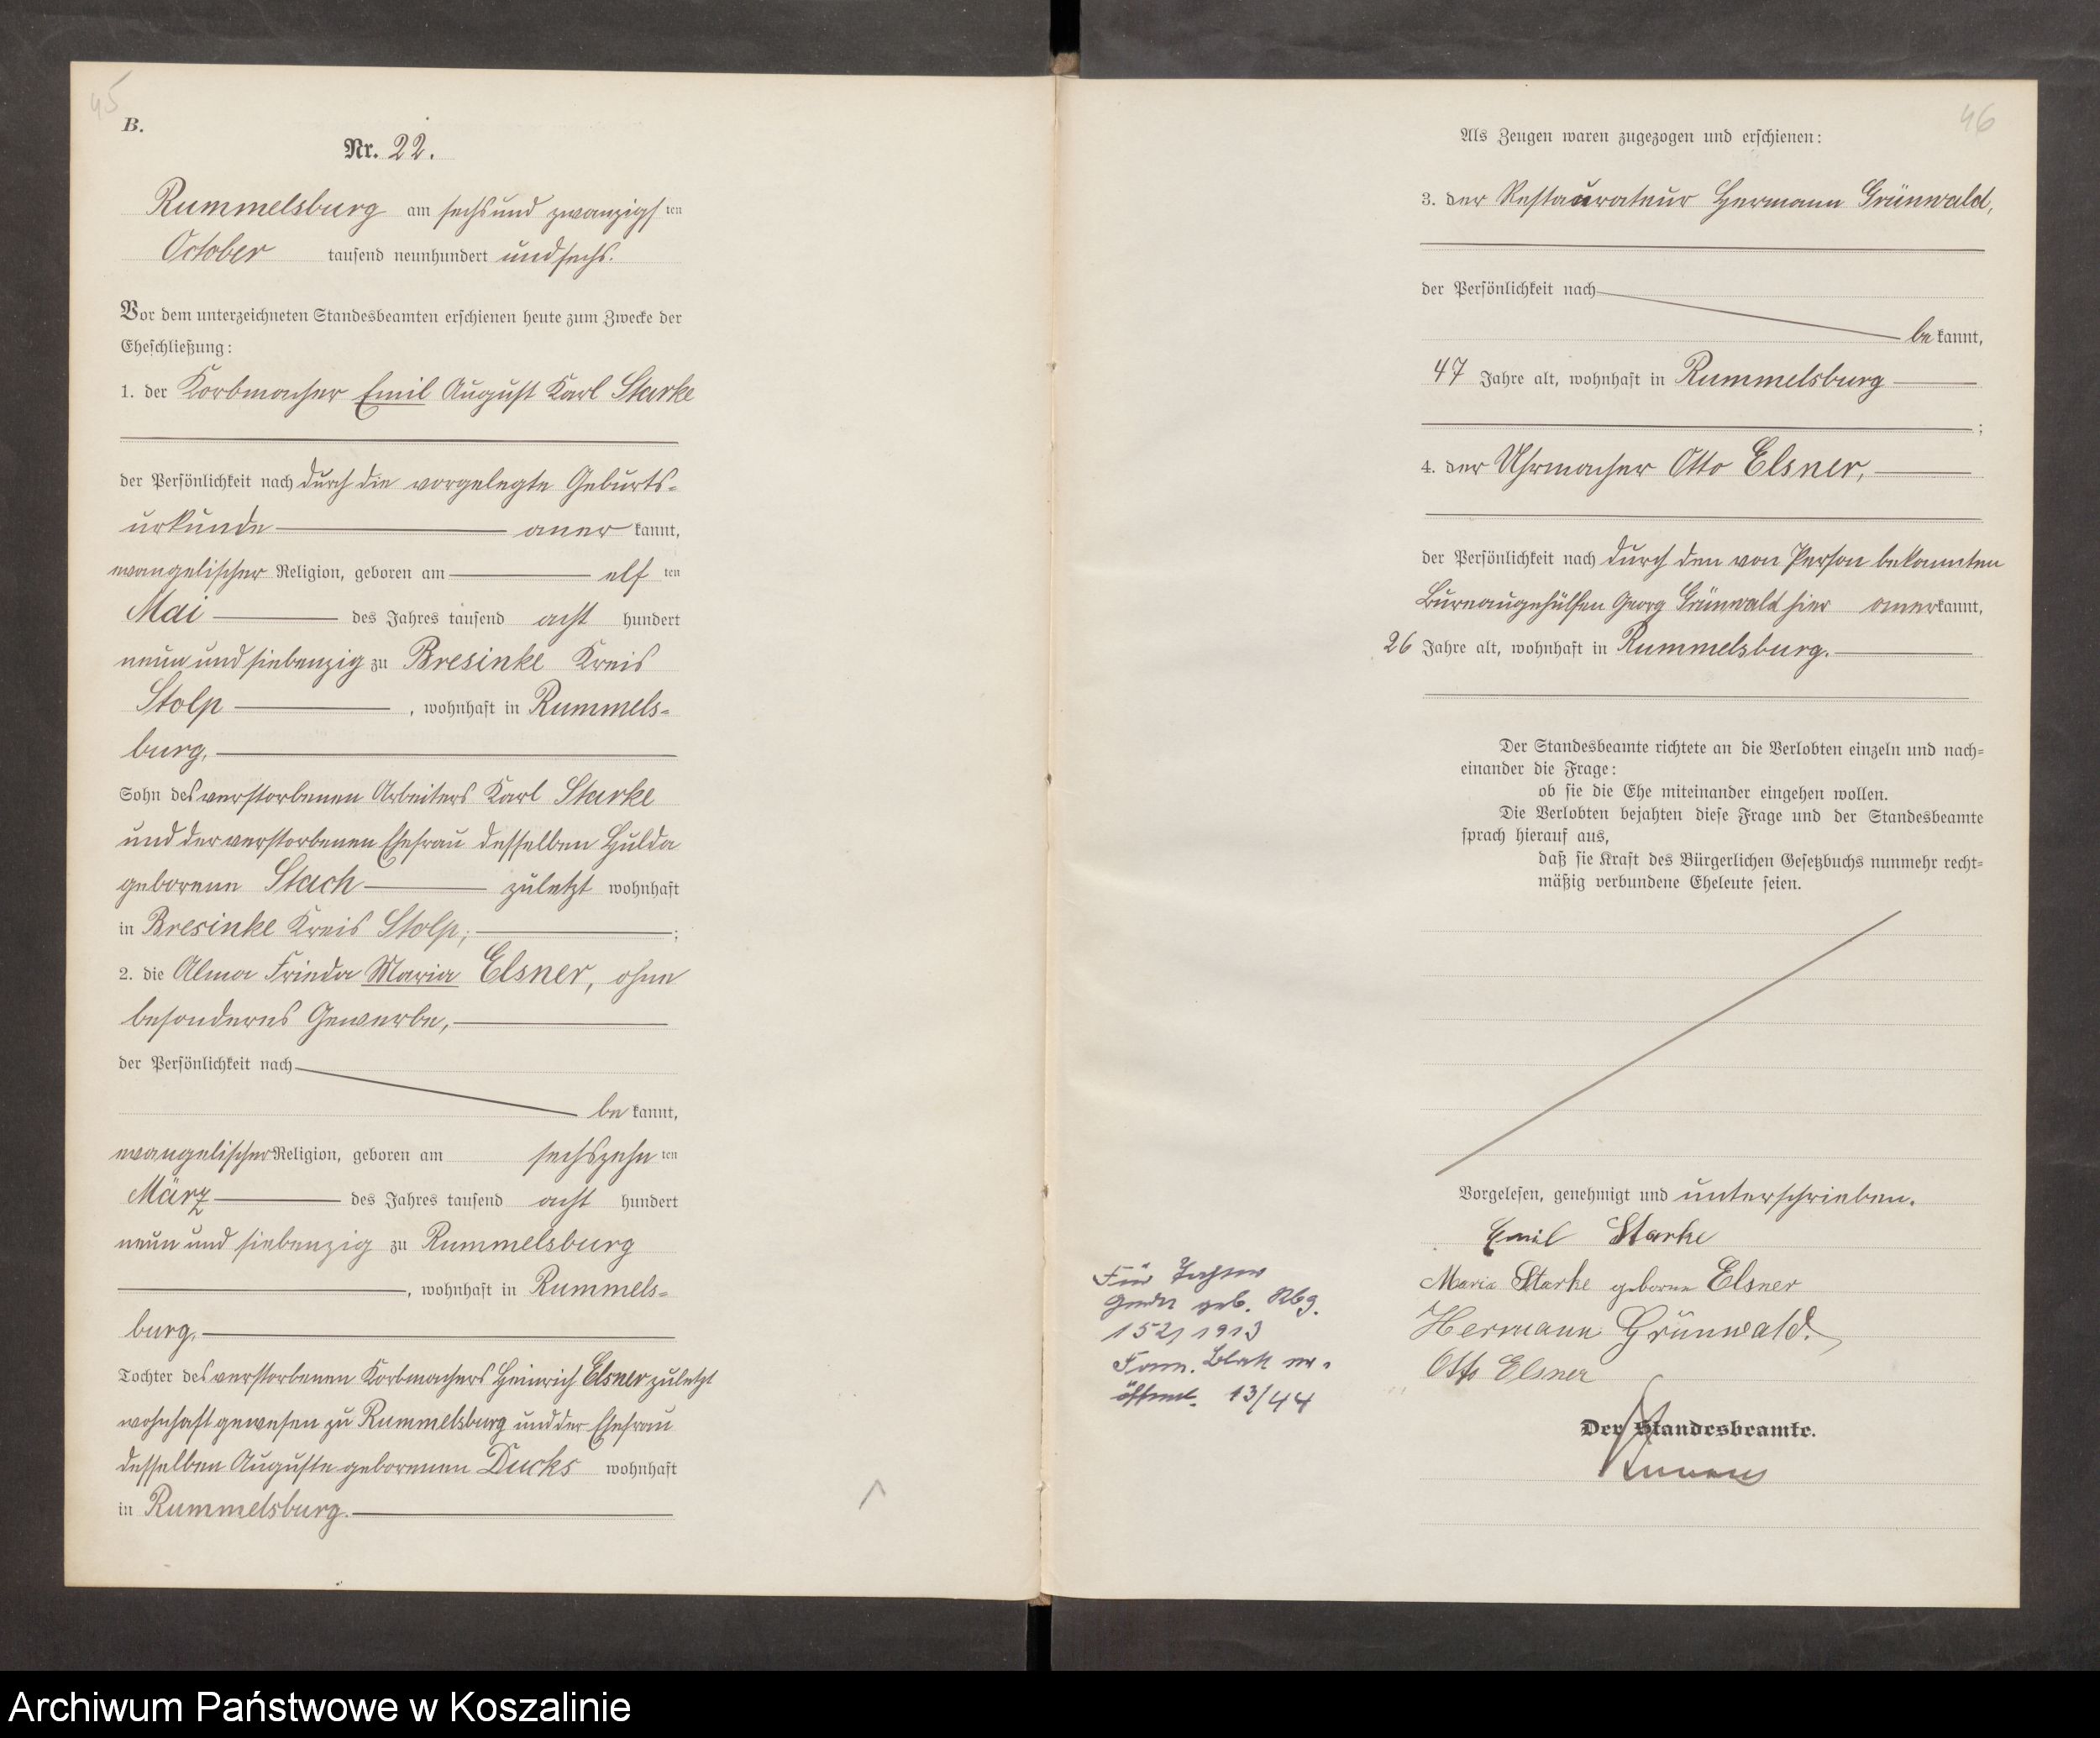 45
B.
Nr. 22.
Rummelsburg am sechsundzwanzigsten
October tausend neunhundert und sechs.
Vor dem unterzeichneten Standesbeamten erschienen heute zum Zwecke der
Eheschließung:
1. der Korbmacher Emil August Karl Starke
der Persönlichkeit nach durch die vorgelegte Geburts-
urkunde anerkannt,
evangelischer Religion, geboren am elften
Mai des Jahres tausend acht hundert
neun und siebenzig zu Bresinke Kreis
Stolp, wohnhaft in Rummels-
burg,
Sohn des verstorbenen Arbeiters Karl Starke
und der verstorbenen Ehefrau desselben Hulda
geborene Stach zuletzt wohnhaft
in Bresinke Kreis Stolp;
2. die Alma Frieda Maria Elsner, ohne
besonderes Gewerbe,
der Persönlichkeit nach
bekannt,
evangelischer Religion, geboren am sechszehnten
März des Jahres tausend acht hundert
neun und siebenzig zu Rummelsburg
, wohnhaft in Rummels-
burg,
Tochter des verstorbenen Korbmachers Heinrich Elsner zuletzt
wohnhaft gewesen zu Rummelsburg und der Ehefrau
desselben Auguste geborenen Ducks wohnhaft
in Rummelsburg.
46
Als Zeugen waren zugezogen und erschienen:
3. der Restaurateur Hermann Grünwald,
der Persönlichkeit nach
bekannt,
47 Jahre alt, wohnhaft in Rummelsburg
;
4. der Uhrmacher Otto Elsner,
der Persönlichkeit nach durch den von Person bekannten
Bureaugehülfen Georg Grünwald hier anerkannt,
26 Jahre alt, wohnhaft in Rummelsburg.
Der Standesbeamte richtete an die Verlobten einzeln und nach-
einander die Frage:
ob sie die Ehe miteinander eingehen wollen.
Die Verlobten bejahten diese Frage und der Standesbeamte
sprach hierauf aus,
daß sie Kraft des Bürgerlichen Gesetzbuchs nunmehr recht-
mäßig verbundene Eheleute seien.
Vorgelesen, genehmigt und unterschrieben.
Emil Starke
Maria Starke geborene Elsner
Hermann Grünwald.
Otto Elsner
Der Standesbeamte.
Für Tochter
geb. Rbg.
152/1913
Fam. Blatt er-
öffnet. 13/44
Archiwum Państwowe w Koszalinie